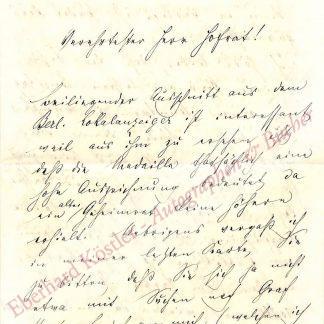 Verehrtester Herr Hofrat!
beiliegender Ausschnitt aus dem
Berl. Lokalanzeiger ist interessant
weil aus ihm zu ersehen ist
daß die Medaille thatsächlich eine
hohe Auszeichnung bedeutet da
ein alter Geheimrat keine höhere
erhielt. Übrigens vergaß ich
in meiner letzten Karte, Sie
zu bitten daß Sie sich ja nicht
etwa mit Suchen nach Graf
mich (welchen ich
Eberhard Köstler Autographen & Bücher